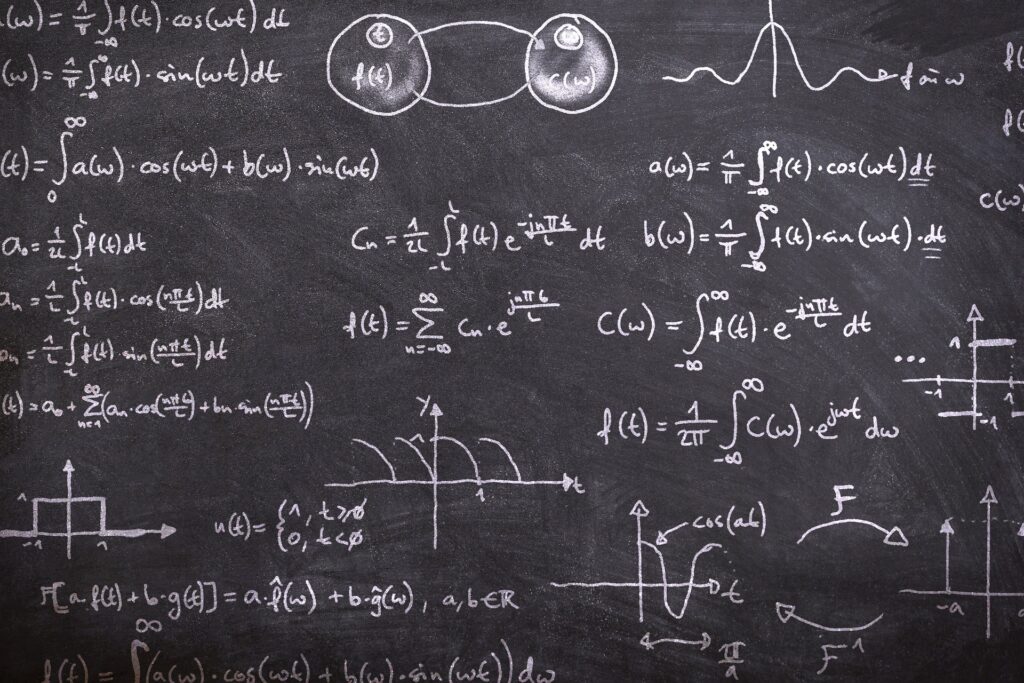 (ω) = 1/π ∫_{-∞} f(t)·cos(ωt) dt
(ω) = 1/π ∫_{-∞}^{∞} f(t)·sin(ωt)dt
t
f(t)
C(ω)
f
ω
(t) = ∫_0^∞ a(ω)·cos(ωt) + b(ω)·sin(ωt)
a(ω) = 1/π ∫_{-∞}^{∞} f(t)·cos(ωt)dt
C(ω)
a₀ = 1/2L ∫_{-L}^{L} f(t)dt
Cn = 1/2L ∫_{-L}^{L} f(t) e^{-jnπt/L} dt
b(ω) = 1/π ∫_{-∞}^{∞} f(t)·sin(ωt)·dt
an = 1/L ∫_{-L}^{L} f(t)·cos(nπt/L)dt
f(t) = Σ_{n=-∞}^{∞} Cn·e^{jnπt/L}
C(ω) = ∫_{-∞}^{∞} f(t)·e^{-jnπt/L} dt
n = 1/L ∫_{-L}^{L} f(t)·sin(nπt/L)dt
... 1 -1 1 -1
(t) = a₀ + Σ_{n=1}^{∞} (an·cos(nπt/L) + bn·sin(nπt/L))
f(t) = 1/2π ∫_{-∞}^{∞} C(ω)·e^{jωt} dω
y
1
1
t
1
-1 1
u(t) = {1, t≥0
0, t<0
cos(at)
t
π/a
F
F⁻¹
-a
F[a·f(t) + b·g(t)] = a·f̂(ω) + b·ĝ(ω), a,b∈ℝ
f(t) = ∫^∞ (a(ω)·cos(ωt) + b(ω)·sin(ωt)) dω